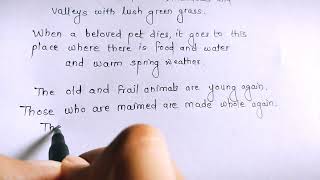 valleys with lush green grass.
When a beloved pet dies, it goes to this
place where there is food and water
and warm spring weather.
The old and frail animals are young again.
Those who are maimed are made whole again.
The